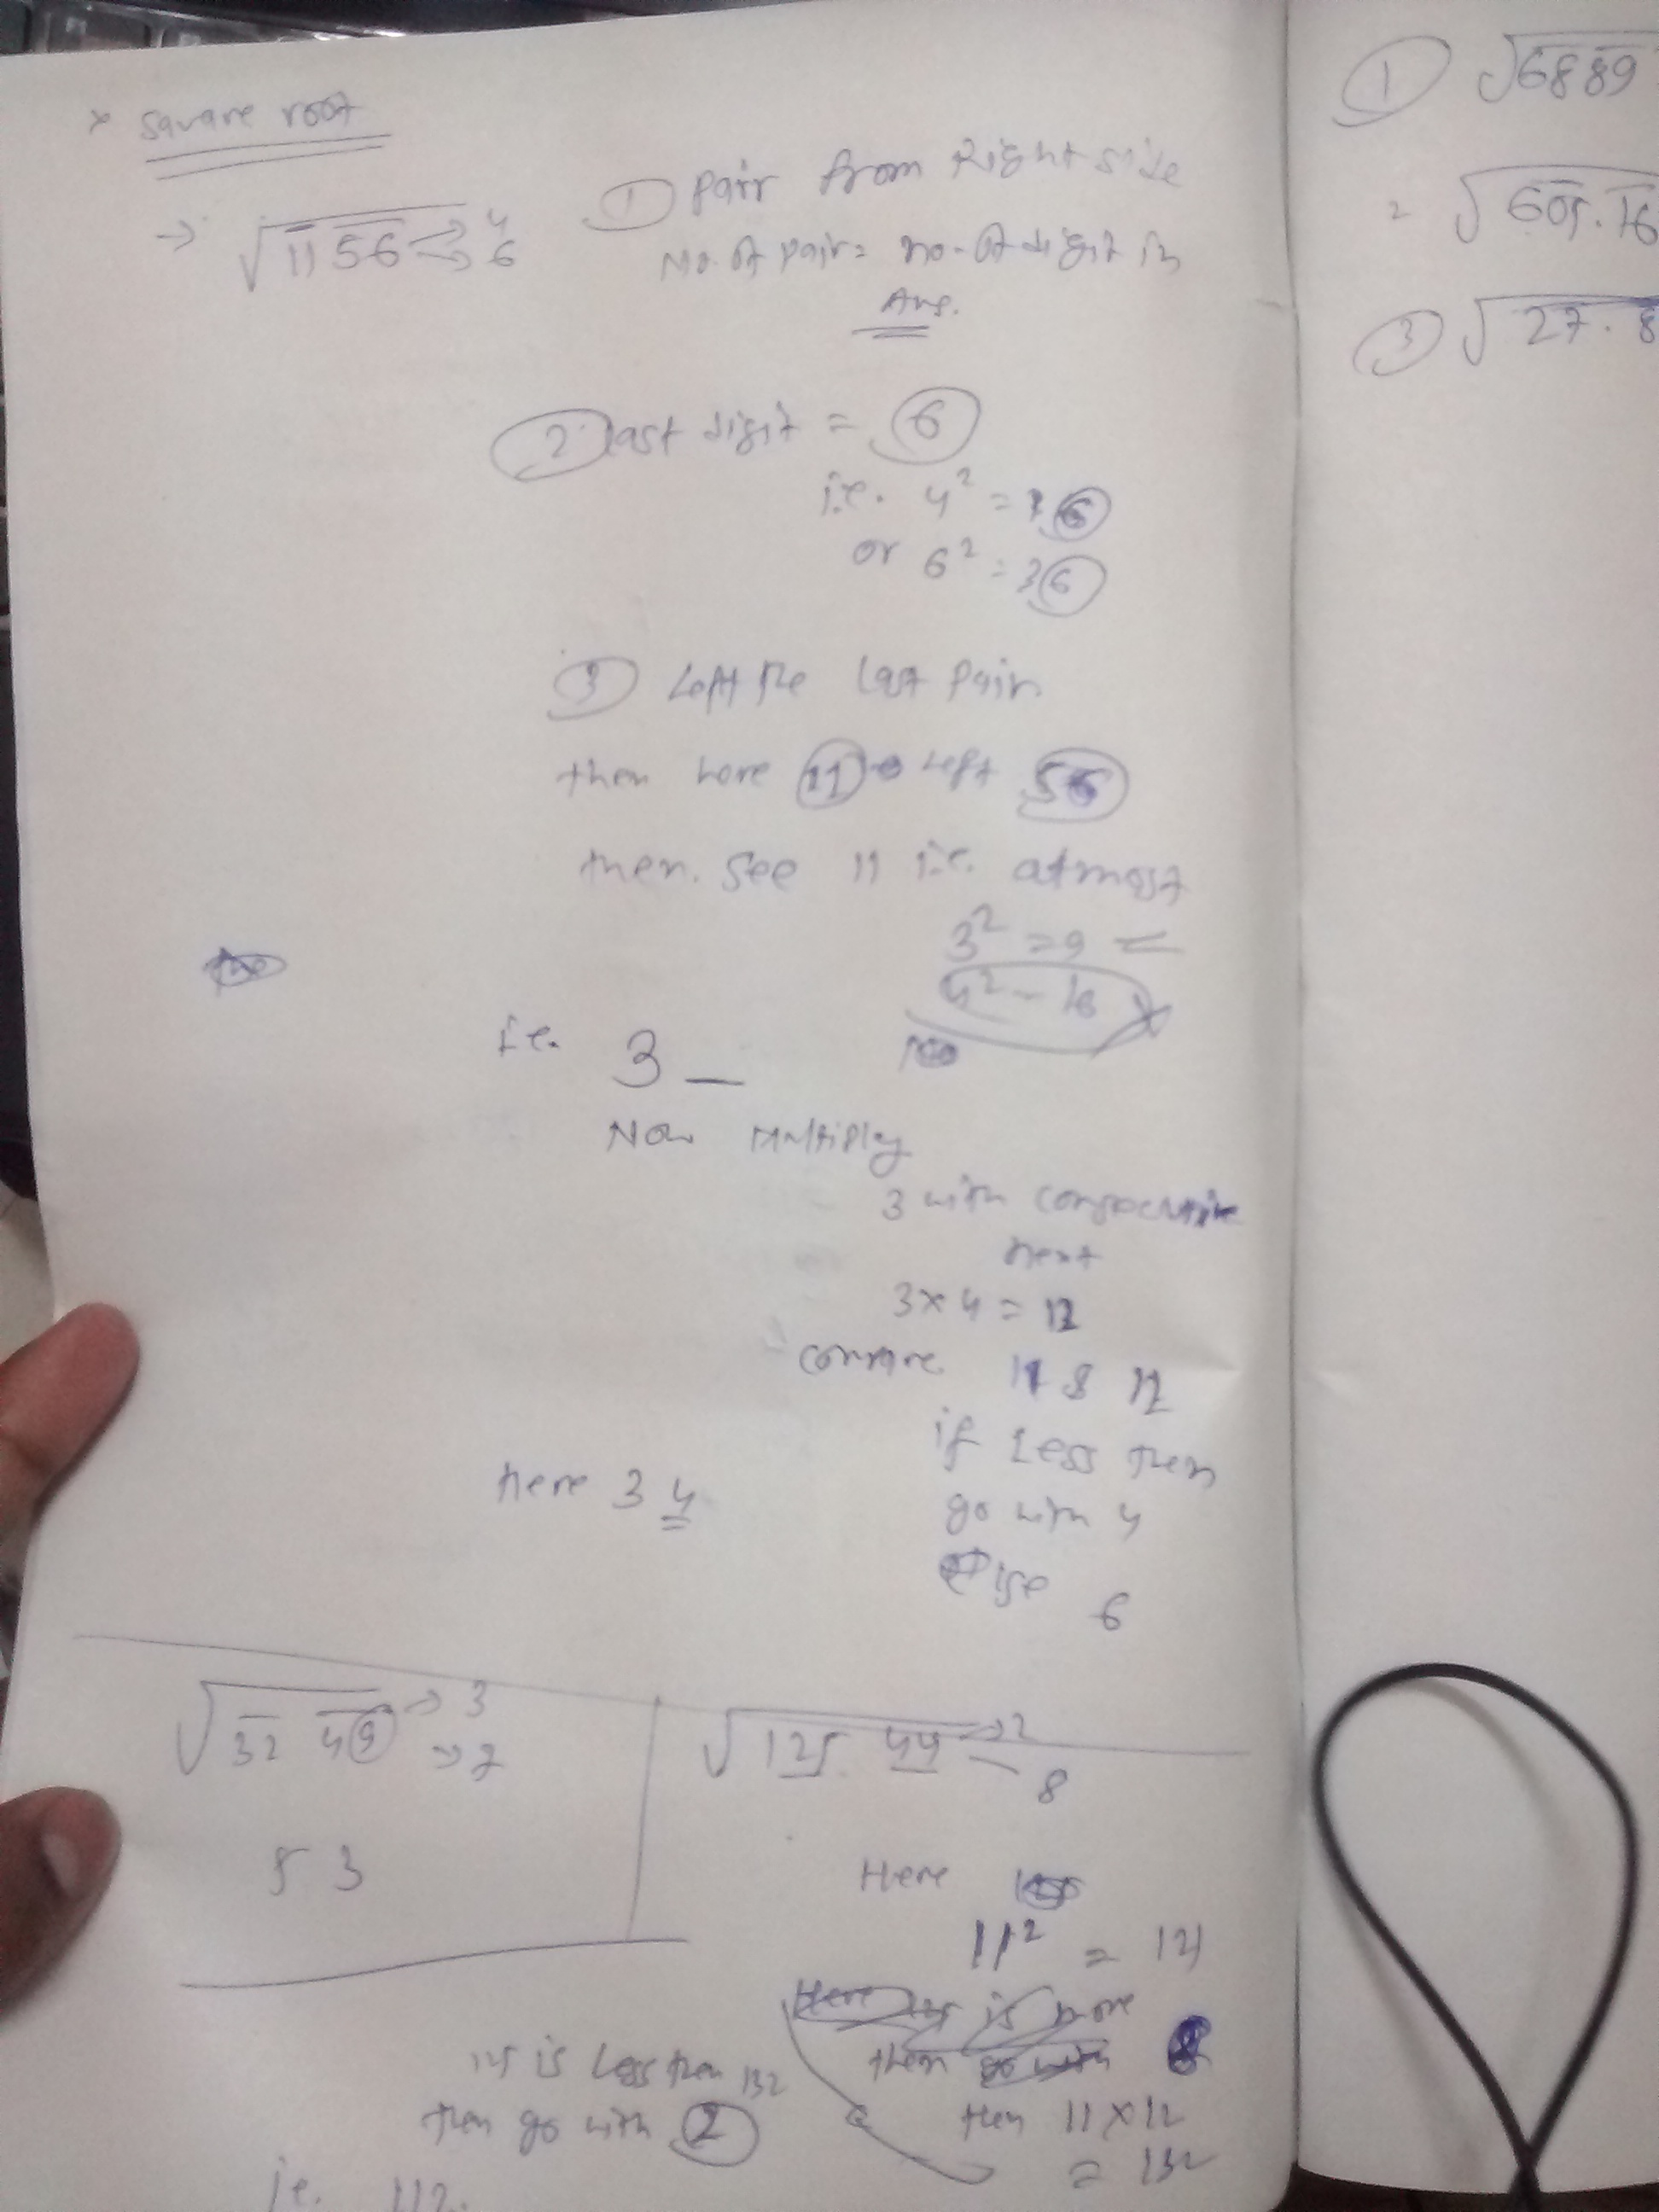 × square root
→ √1156 → 4
→ 6
① Pair from Right side
No. of pair = no. of digit in
Ans.
② last digit = 6
i.e. 4² = 16
or 6² = 36
③ Left the last Pair.
then here 11 → left 56
then. See 11 i.e. atmost
3² = 9
4² – 16 ×
i.e. 3 _
Now Multiply
3 with consecutive
next
3 × 4 = 12
compare 11 & 12
if Less then
go with 4
else 6
Here 3 4
√32 49 → 3
→ 7
5 3
√125 44 → 2
8
Here
11² = 121
then
then 11 × 12
= 132
125 is Less then 132
then go with 2
i.e. 112.
① √6889
2 √605.16
③ √27.8